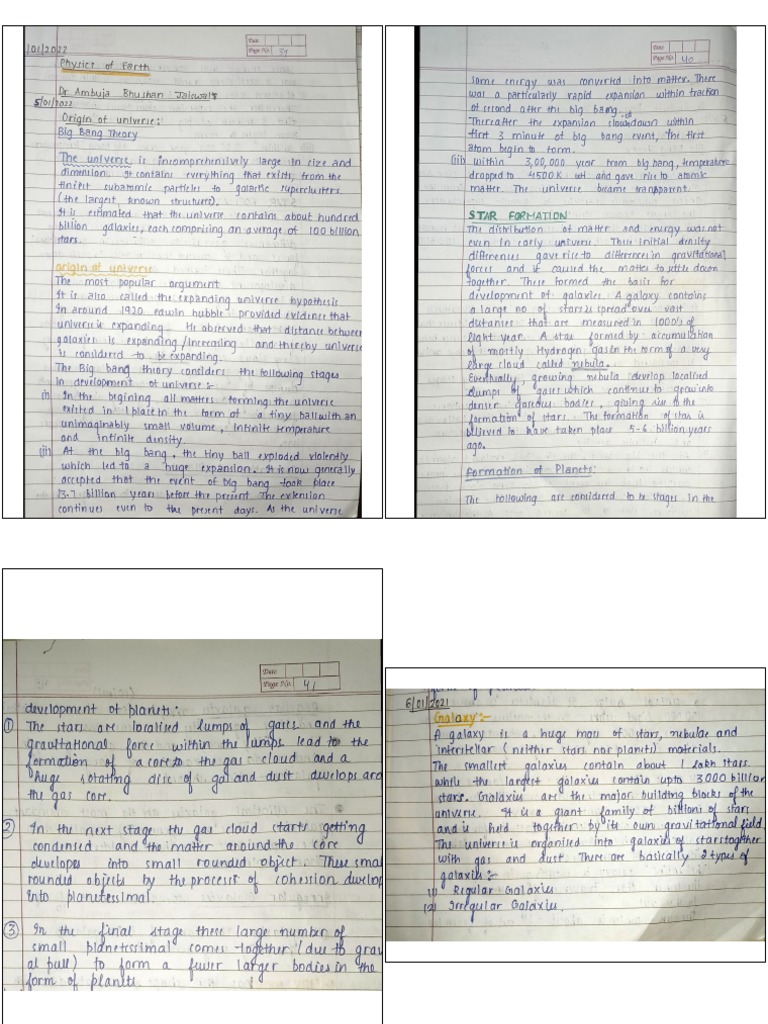 /01/2022
Date
Page No. 39
Physics of Earth
Dr Ambuja Bhushan Jaiswal
5/01/2022
Origin of universe:
Big Bang Theory
The universe is incomprehensively large in size and
dimension. It contains everything that exists, from the
tiniest subatomic particles to galactic superclusters
(the largest known structure).
It is estimated that the universe contains about hundred
billion galaxies, each comprising an average of 100 billion
stars.
origin of universe
The most popular argument
It is also called the expanding universe hypothesis
In around 1920 edwin hubble provided evidence that
universe is expanding. He observed that distance between
galaxies is expanding/increasing and thereby universe
is considered to be expanding.
The Big bang theory considers the following stages
in development of universe:-
(i) In the begining all matters forming the universe
existed in 1 place in the form of a tiny ball with an
unimaginably small volume, infinite temperature
and infinite density.
(ii) At the big bang, the tiny ball exploded violently
which led to a huge expansion. It is now generally
accepted that the event of big bang took place
13.7 billion years before the present. The extension
continues even to the present days. As the universe
Date
Page No. 40
some energy was converted into matter. There
was a particularly rapid expansion within fraction
of second after the big bang.
Thereafter the expansion slowed down within
first 3 minute of big bang event, the first
atom begin to form.
(iii) Within 3,00,000 year from big bang, temperature
dropped to 4500K and gave rise to atomic
matter. The universe became transparent.
STAR FORMATION
The distribution of matter and energy was not
even in early universe. These initial density
differences gave rise to differences in gravitational
forces and it caused the matter to settle down
together. These formed the basis for
development of galaxies. A galaxy contains
a large no of stars spread over vast
distances that are measured in 1000's of
light year. A star formed by accumulation
of mostly Hydrogen gas in the form of a very
large cloud called nebula.
Eventually, growing nebula develop localised
clumps of gases which continue to grow into
denser gaseous bodies, giving rise to the
formation of stars. The formation of star is
believed to have taken place 5-6 billion years
ago.
Formation of Planets:
The following are considered to be stages in the
Date
Page No. 41
development of planets:
(1) The stars are localised lumps of gases and the
gravitational force within the lumps lead to the
formation of a core to the gas cloud and a
huge rotating disc of gas and dust develops aro
the gas core.
(2) In the next stage the gas cloud starts getting
condensed and the matter around the core
develops into small rounded object. These smal
rounded objects by the process of cohession develop
into planetessimal.
(3) In the final stage these large number of
small planetessimal comes together (due to grav
al pull) to form a fewer larger bodies in the
form of planets.
6/01/2021
Galaxy:-
A galaxy is a huge mass of stars, nebulae and
interstellar (neither stars nor planets) materials.
The smallest galaxies contain about 1 lakh stars
while the largest galaxies contain upto 3000 billion
stars. Galaxies are the major building blocks of the
universe. It is a giant family of billions of stars
and is held together by its own gravitational field
The universe is organised into galaxies of stars together
with gas and dust. There are basically 2 types of
galaxies:-
(1) Regular Galaxies
(2) Irregular Galaxies.